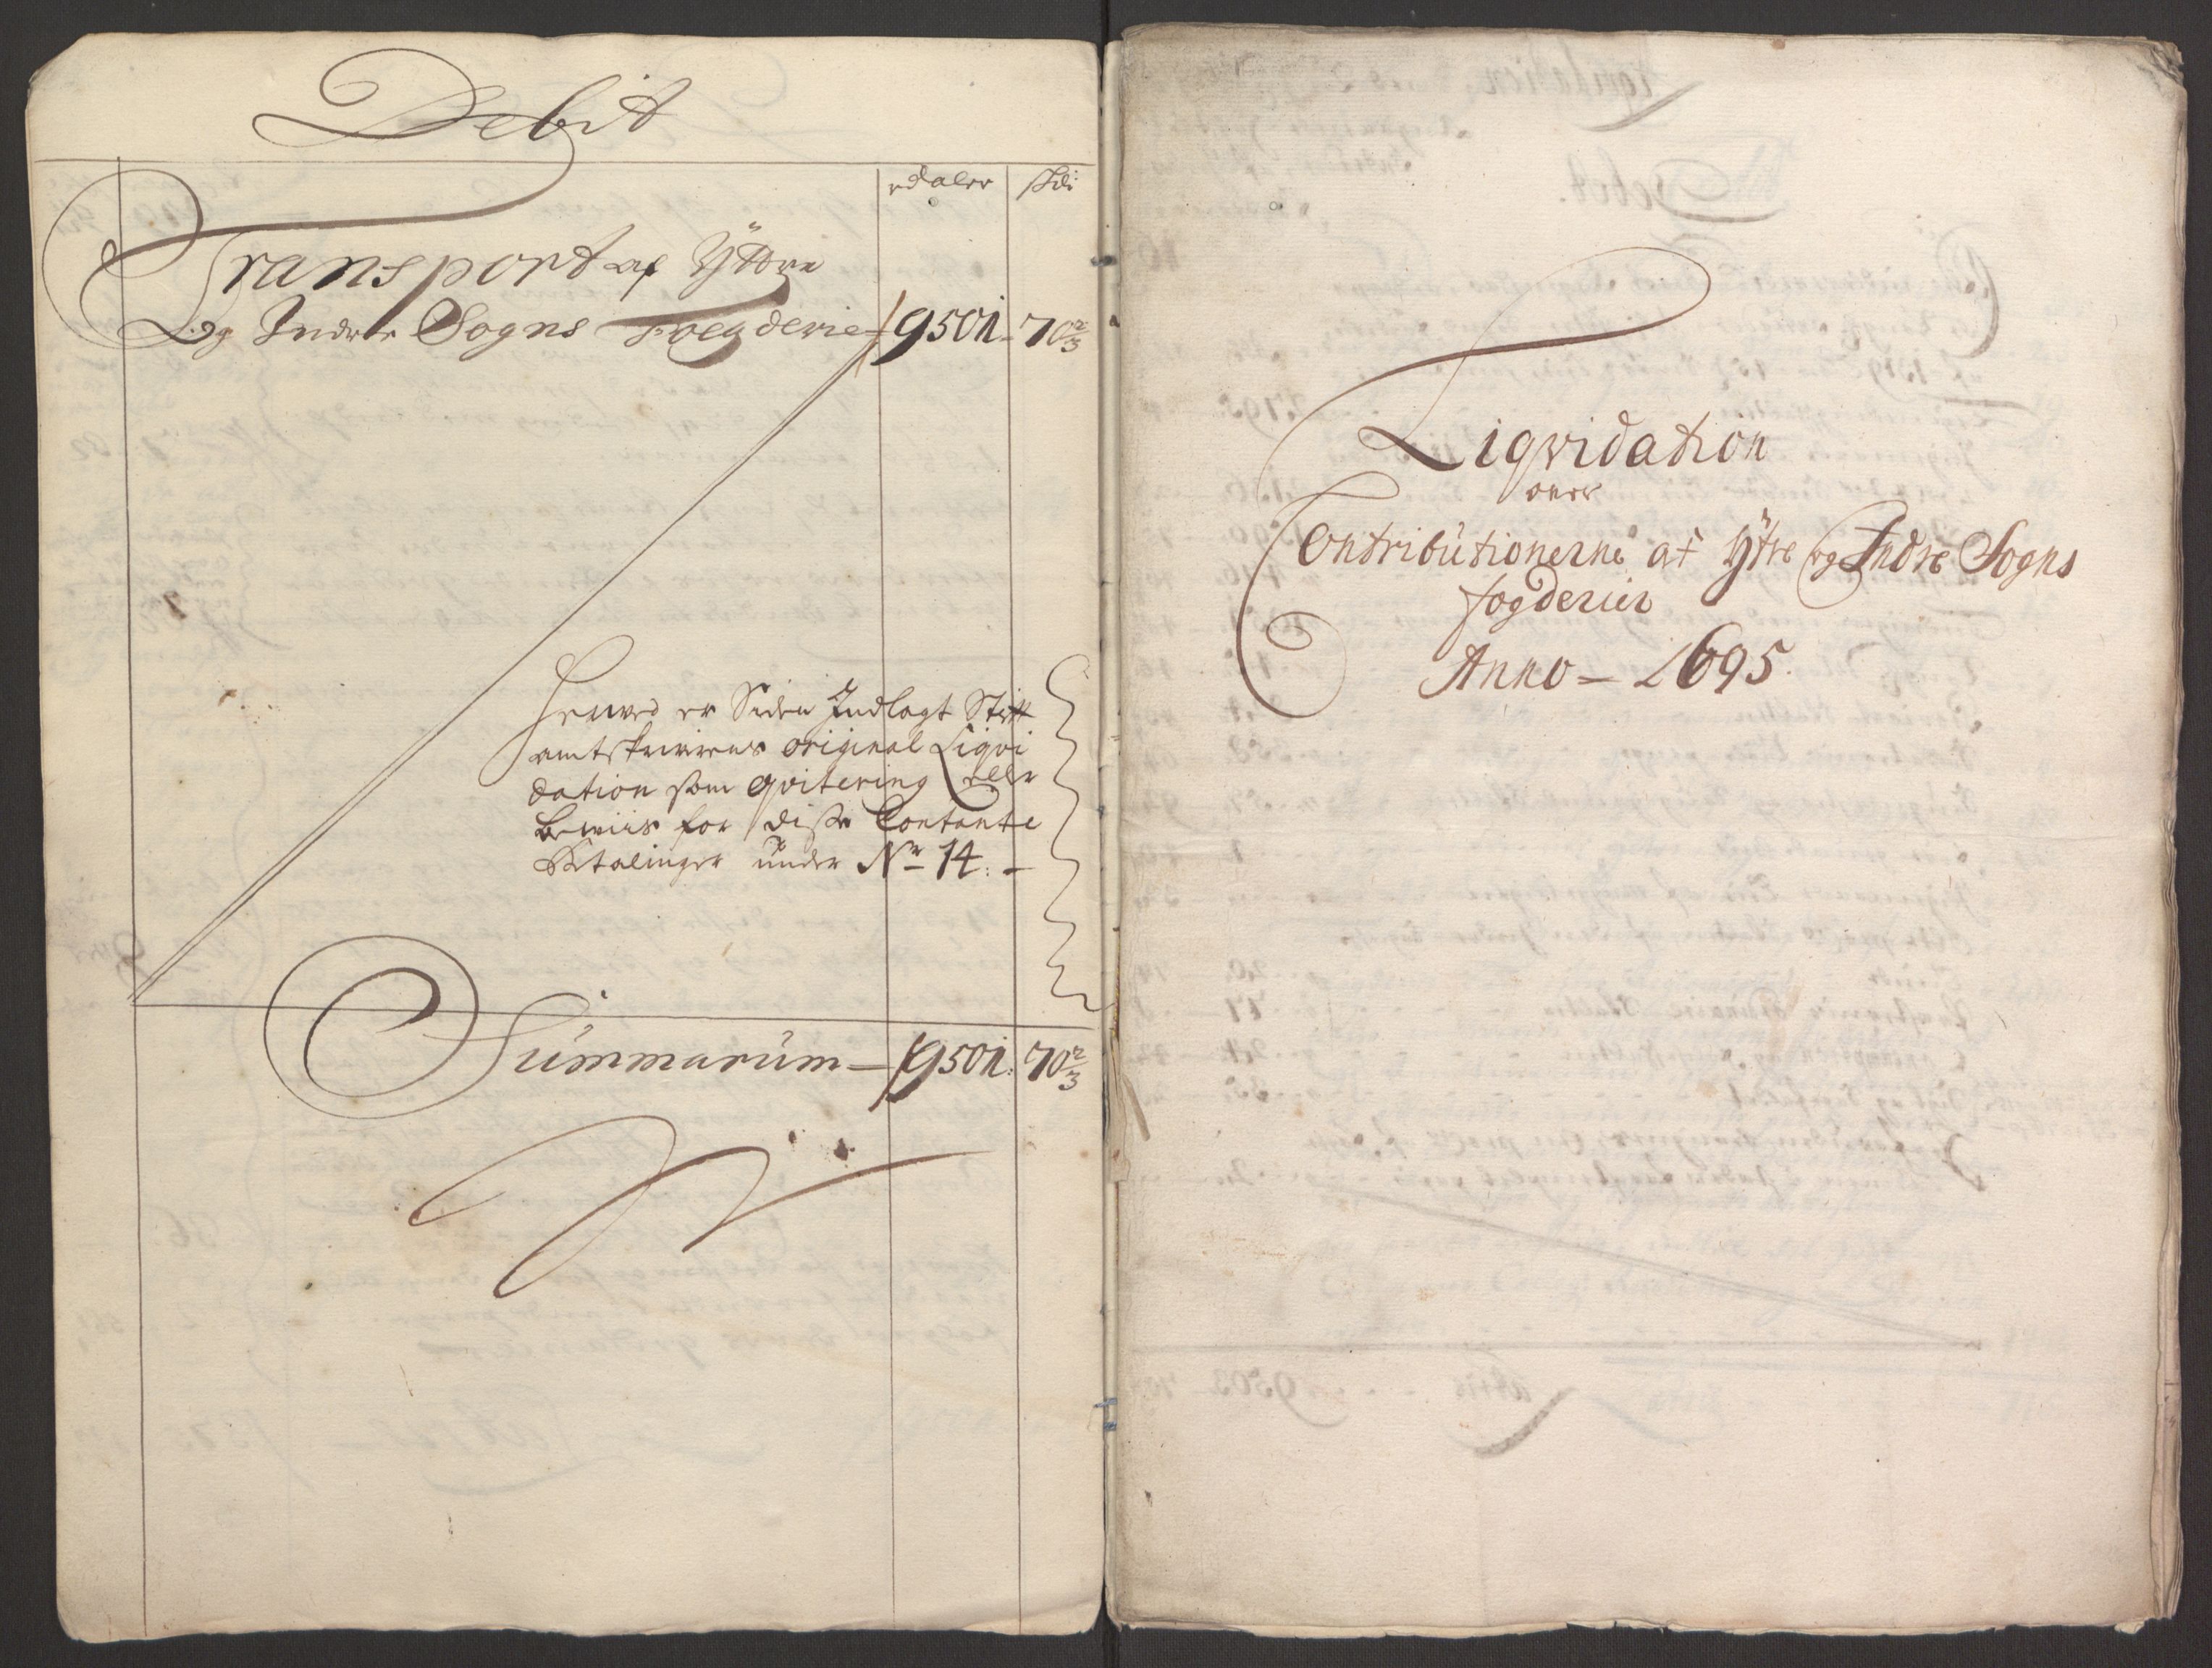 Debit
rdaler skl:
Transport af Ÿttre
Og Indere Sogns Foegderie 9501 70 2/3
Herwed er Siden Indlagt Stift
amtskrivrens original Liqvi
dation som qvitering eller
bewiis for disse Contante
Betalinger under Nr 14. -
Summarum - 9501: 70 2/3
Liqvidation
over
Contributionerne af Ÿtre og Indre Sogns
fogderier
Anno - 1695.